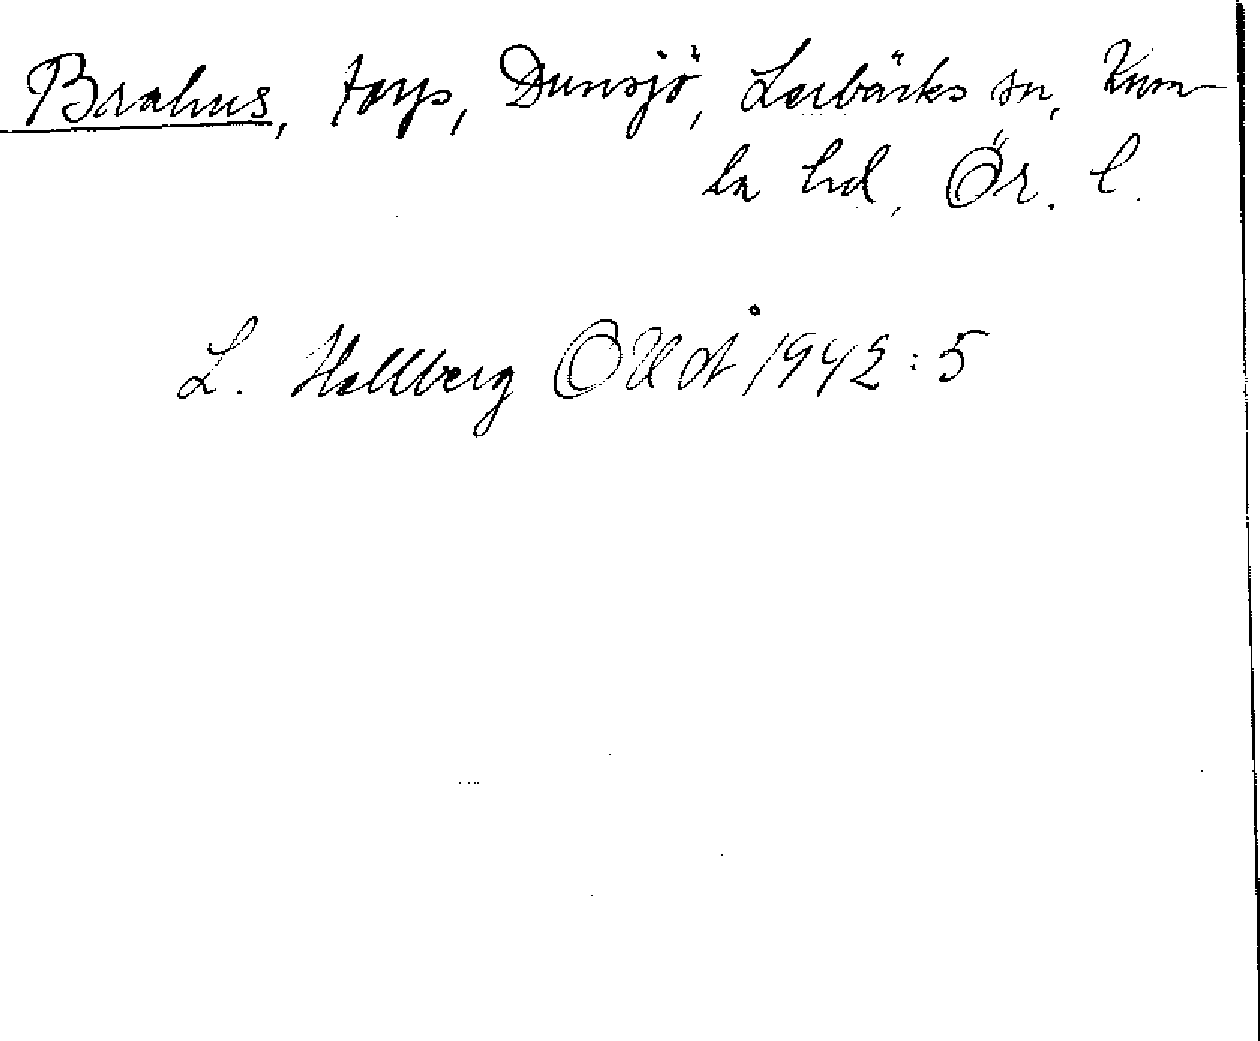 Brahus, torp, Dunsjö, Lerbäcks sn, Kum-
la hd, Ör. l.
L. Hellberg OUÅ 1942:5